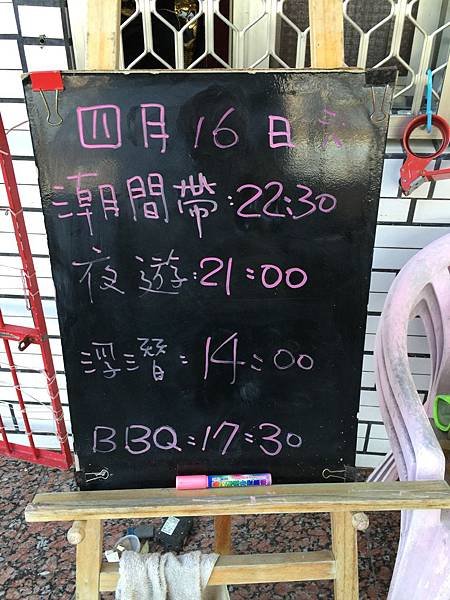 四月16日
潮間帶:22:30
夜遊:21:00
浮潛:14:00
BBQ:17:30